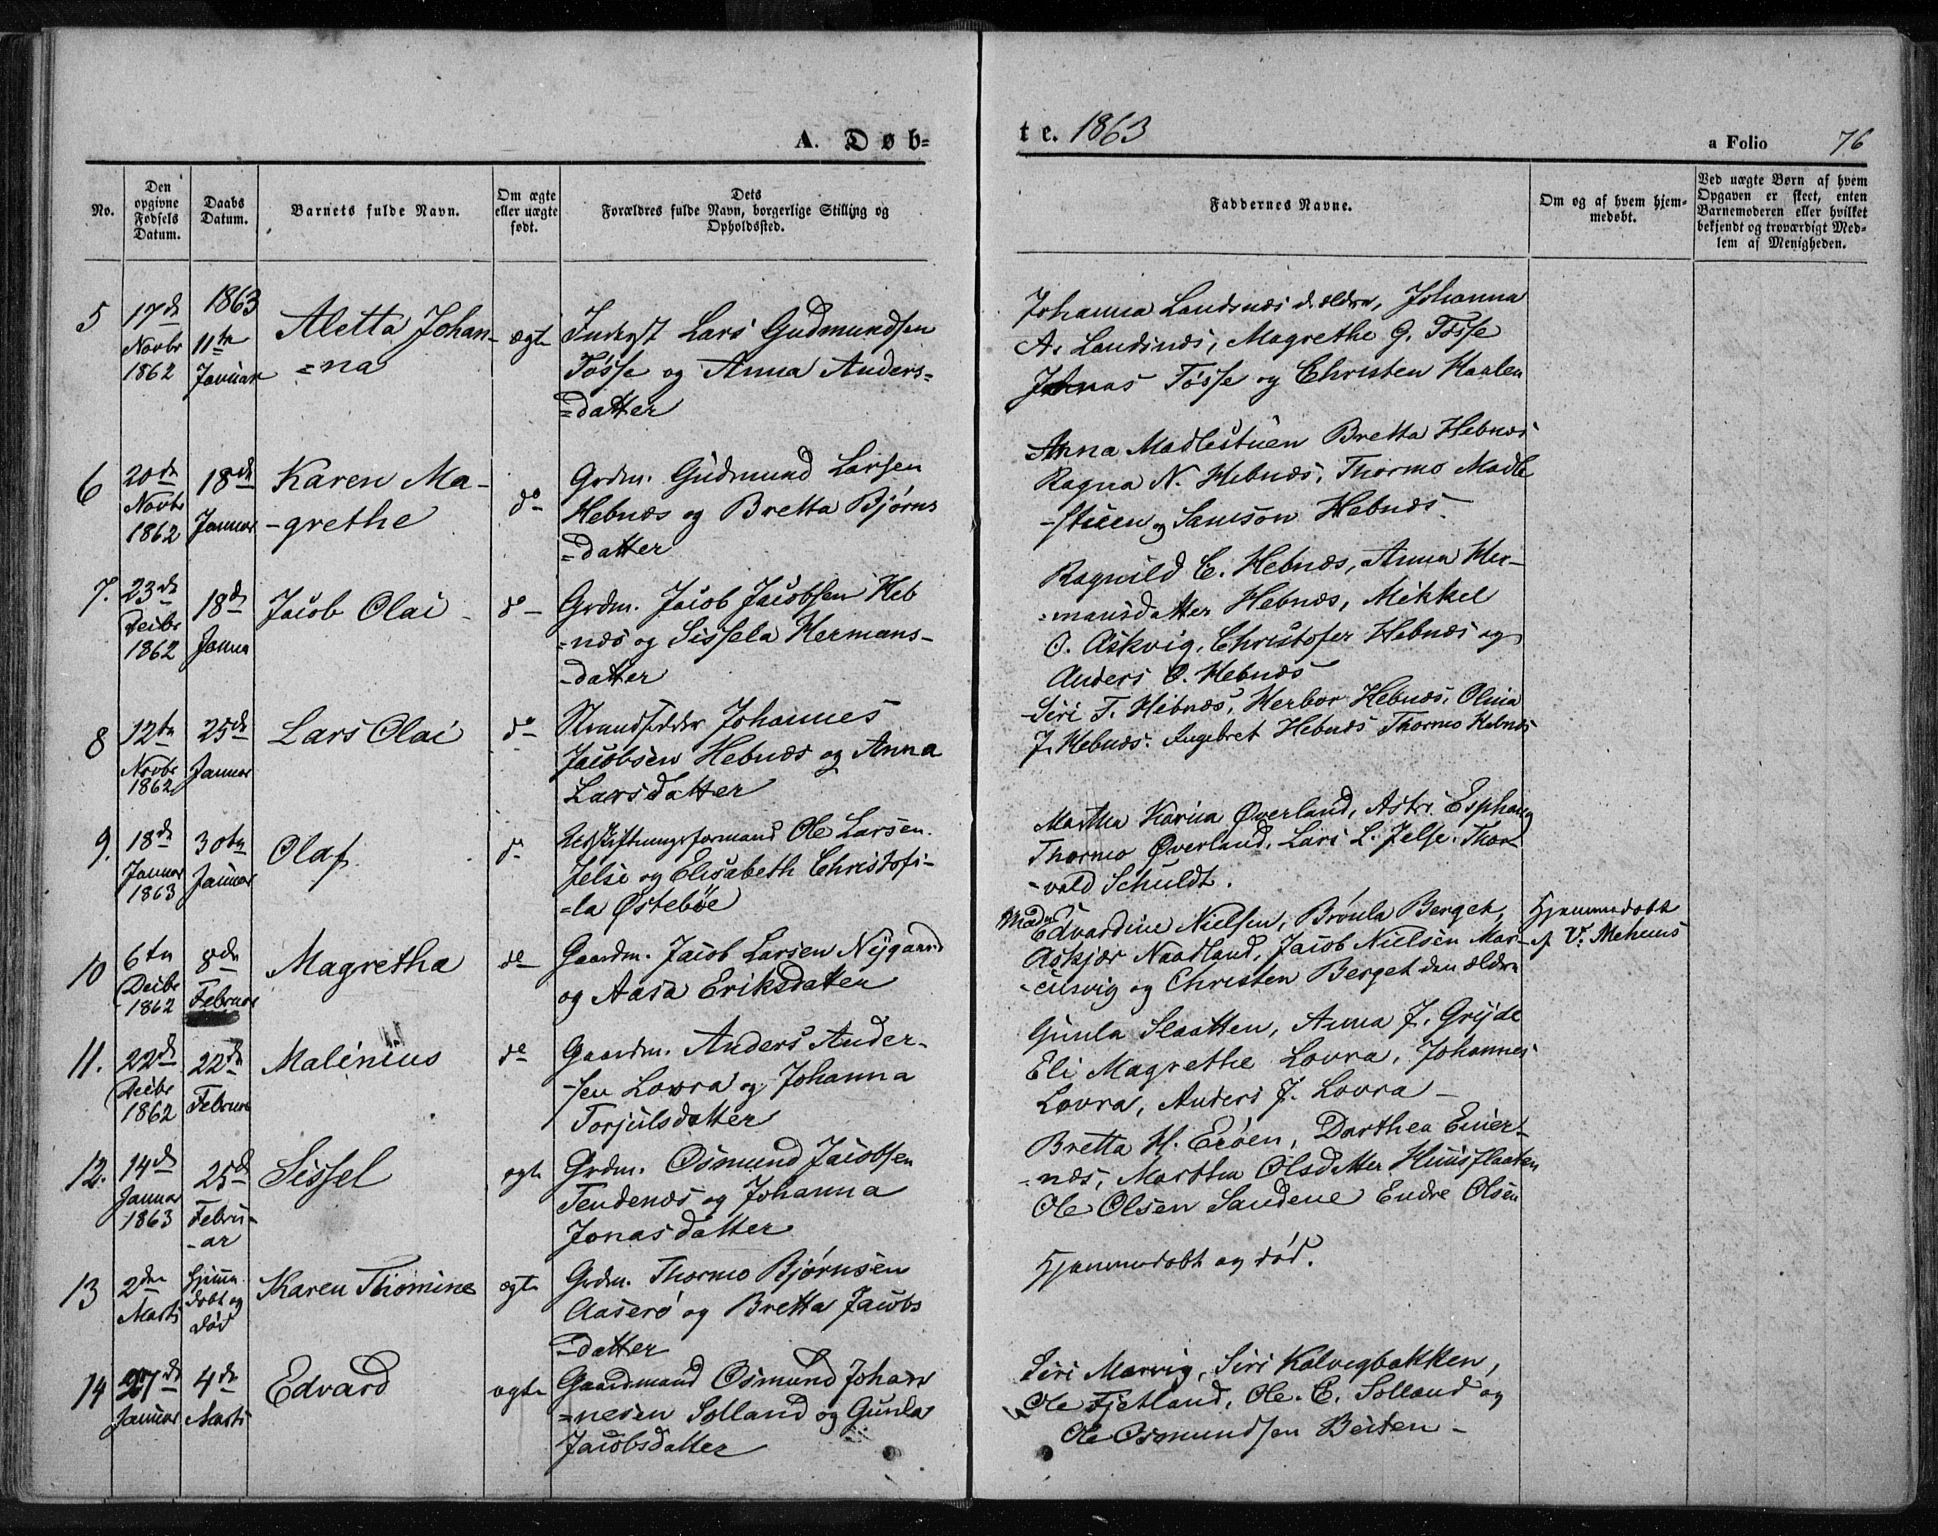 A. Døb-
te. 1863
a Folio 76
No.
Den opgivne Fødsels Datum.
Daabs Datum.
Barnets fulde Navn.
Om ægte eller uægte født.
Dets Forældres fulde Navn, borgerlige Stilling og Opholdssted.
Faddernes Navne.
Om og af hvem hjem-
medøbt.
Ved uægte Børn af hvem
Opgaven er skeet, enten
Barnemoderen eller hvilket
bekjendt og troværdigt Med-
lem af Menigheden.
5
17de Novbr 1862
1863 11te Januar
Aletta Johan-
=na
ægte
Inderst Lars Gudmundsen
Tøsse og Anna Anders=
=datter
Johanna Landsnæs d. ældre, Johanna
A. Landsnæs, Magrethe G. Tøsse
Johnas Tøsse og Christen Haalen
6
20de Novbr 1862
18de Januar
Karen Ma-
-grethe
do
Grdm. Gudmund Larsen
Hebnæs og Bretta Bjørns
=datter
Anna Madlestuen Bretta Hebnæs
Ragna N. Hebnæs, Thormo Madle
-stuen og Samson Hebnæs
7.
23de Decbr 1862
18de Janua
Jacob Olai
do
Grdm. Jacob Jacobsen Heb
=næs og Sissela Hermans-
-datter
Ragnild E. Hebnæs, Anna Her-
=mansdatter Hebnæs, Mikkel
O. Askvig, Christofer Hebnæs og
Anders O. Hebnæs
8
12te Novbr 1862
25de Januar
Lars Olai
do
Strandsidder Johannes
Jacobsen Hebnæs og Anna
Larsdatter
Siri T. Hebnæs, Herbor Hebnæs, Olina
J. Hebnæs. Ingebret Hebnæs Thormo Hebnæs
9.
18de Januar 1863
30te Januar
Olaf
do
Udskiftningsformand Ole Larsen
Jelse og Elisabeth Christofi-
=la Østebøe
Martha Karina Øverland, Astri Esphaug
Thormo Øverland, Lars L. Jelse. Thor-
-vald Schuldt.
10
6te Decbr 1862
8de Februar
Magretha
do
Gaardm. Jacob Larsen Nygaard
og Aasa Eriksdatter
Mad. Edvardine Nielsen, Brønla Berget,
Askjær Naadland, Jacob Nielsen Mar-
-cusvig og Christen Berget den ældre
Hjemmedøbt
af V. Mehuus
11.
22de Decbr 1862
22de Februar
Malénius
do
Gaardm. Anders Ander-
-sen Lovra og Johanna
Torjulsdatter
Gunla Slaatten, Anna J. Gryde
Eli Magrethe Lovra, Johannes
Lovra, Anders J. Lovra
12.
14de Januar 1863
25de Febru-
-ar
Sissel
ægte
Grdm. Osmund Jacobsen
Tendenæs og Johanna
Jonasdatter
Bretta H. Erøen, Dorthea Eiier-
=næs, Martha Olsdatter Huusflaaten
Ole Olsen Sandene Endre Olsen
13
2den Marts
hjemme
døbt og
død
Karen Thomine
ægte
Grdm. Thormo Bjørnsen
Aaserø og Bretta Jacobs
=datter
Hjemmedøbt og død.
14
27de Januar
4de Marts
Edvard
ægte
Gaardmand Osmund Johan
=nesen Solland og Gunla
Jacobsdatter
Siri Marvig, Siri Kalvegbakken,
Ole Fjetland, Ole. E. Solland og
Ole Osmundsen Beiten